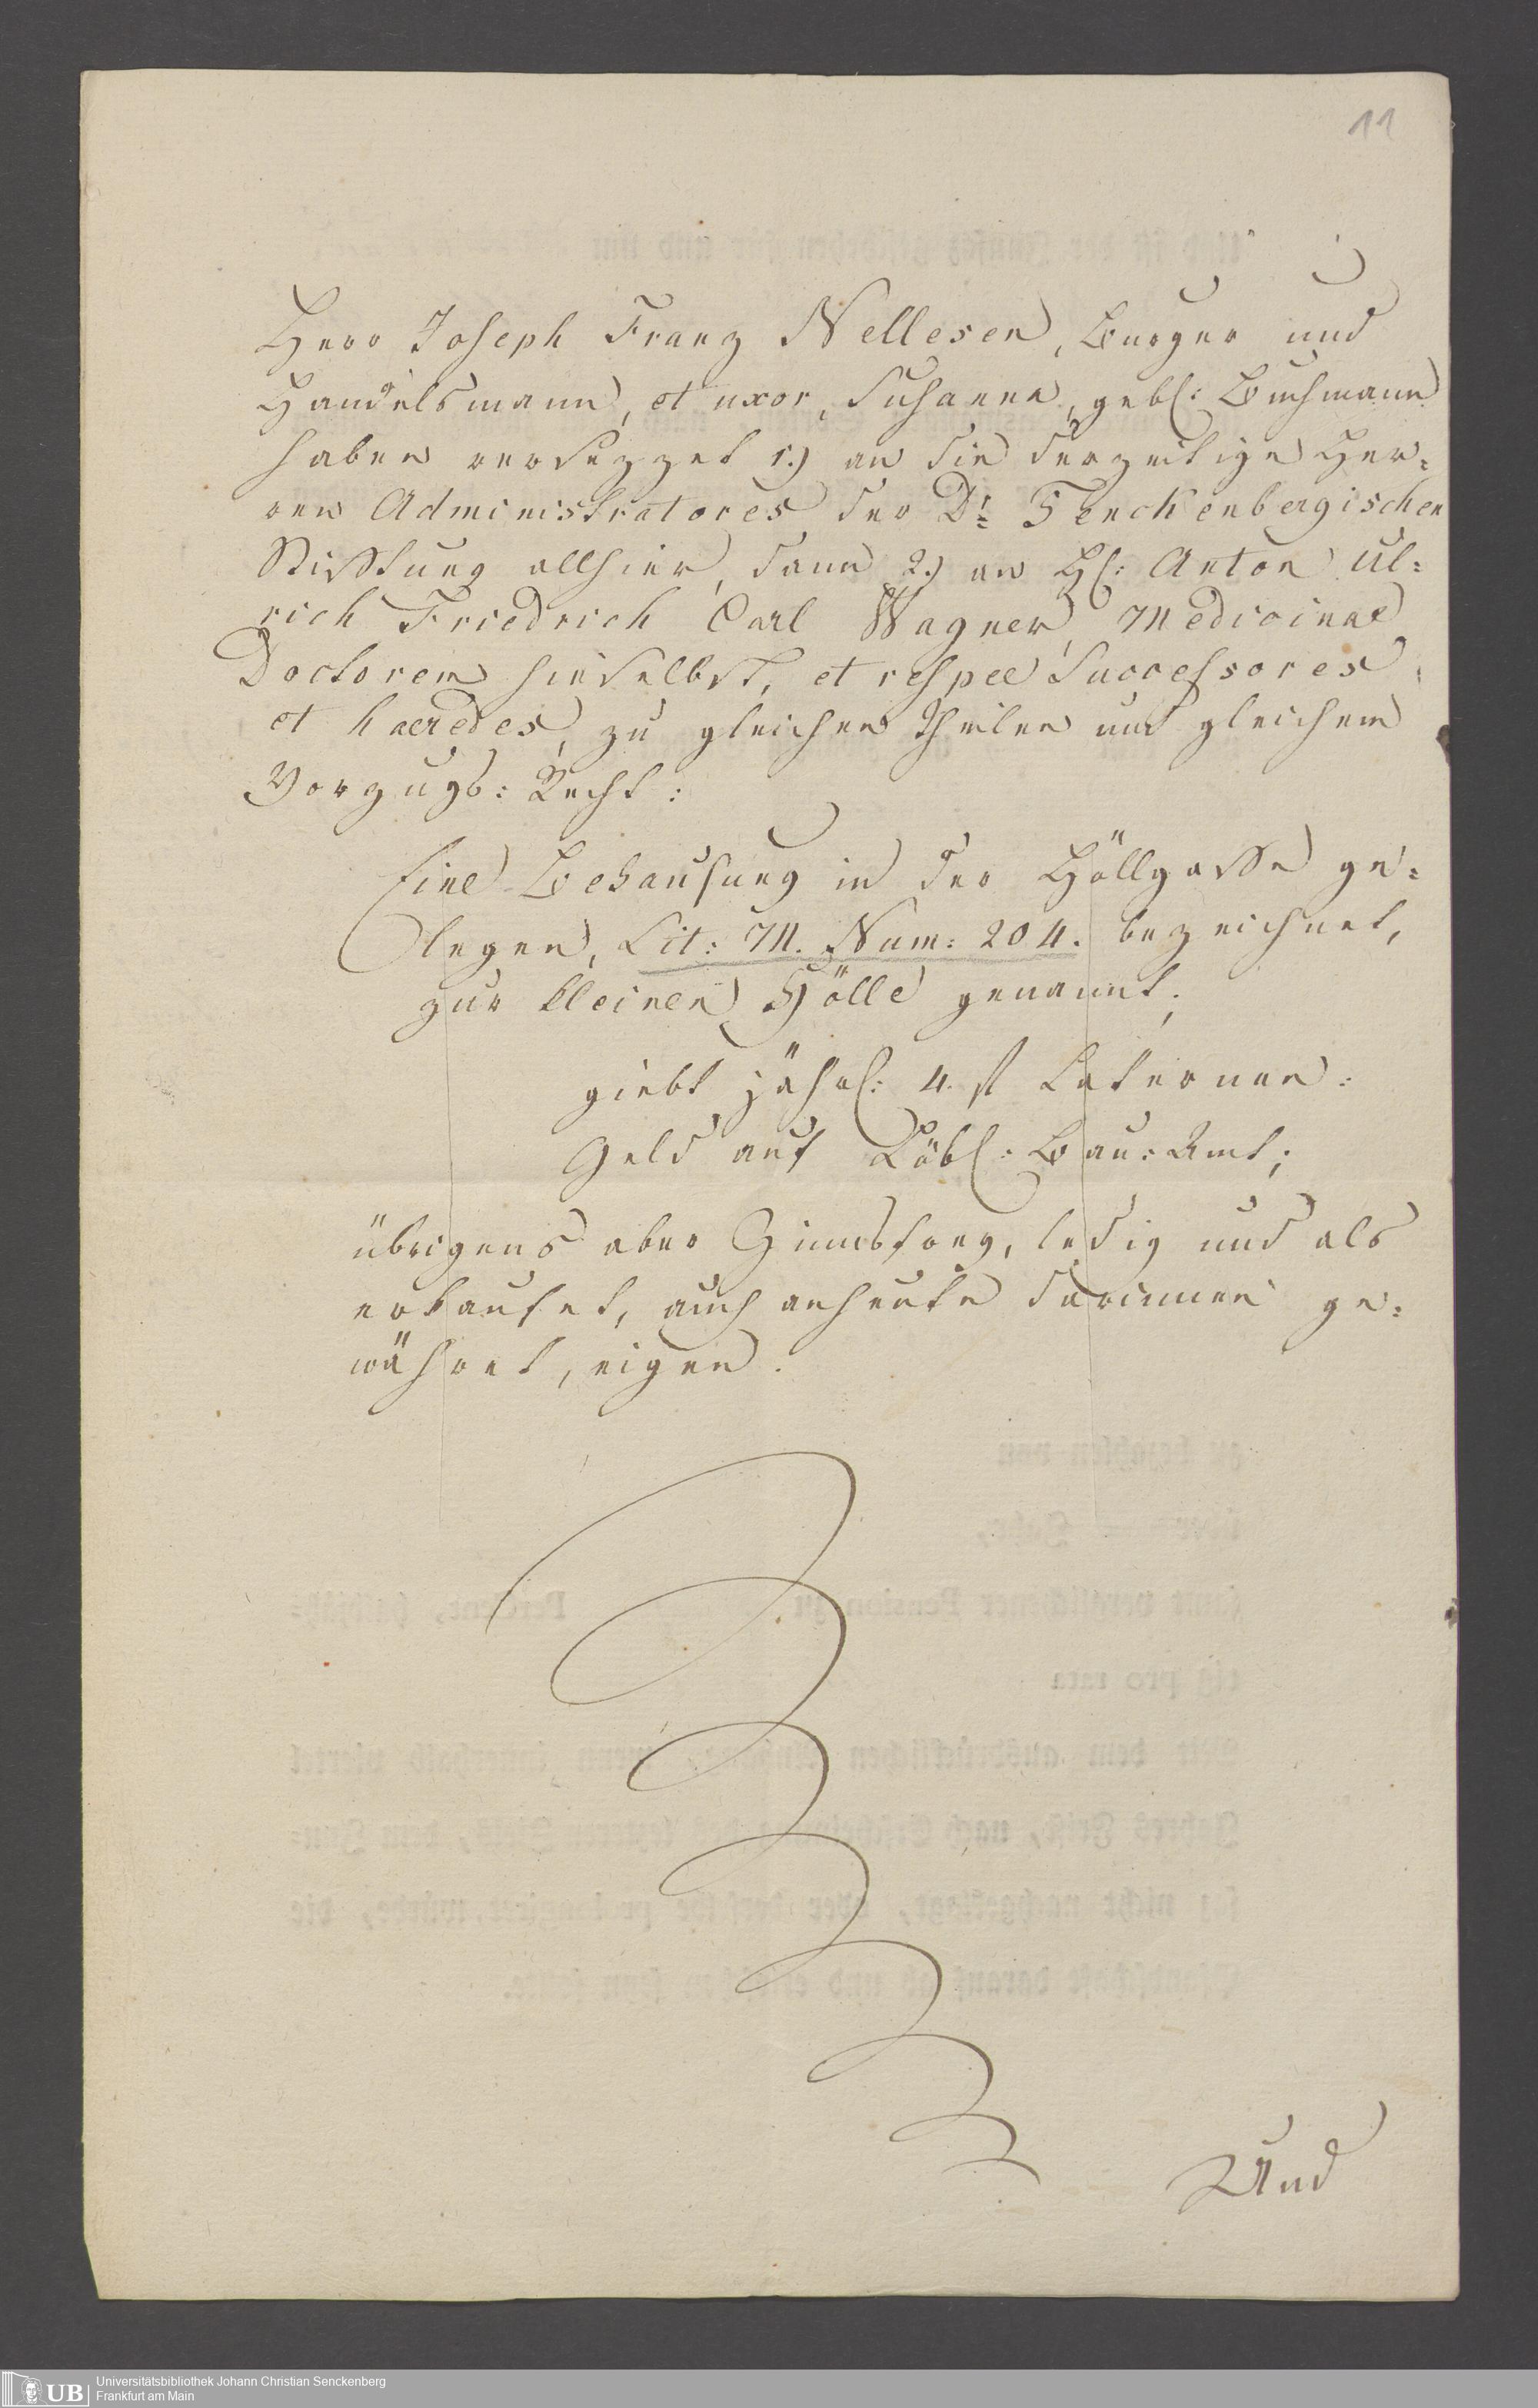 11
Herr Joseph Franz Nellesen, Burger und
Handelsmann, et uxor, Susanna, gebl: Buchmann
haben versezzet 1.) an die derzeitige Her=
ren Administratores der Dr. Senckenbergischen
Stifftung allhier, dann 2.) an Hl: Anton Ul=
rich Friedrich Carl Wagner, Medicinae
Doctorem hieselbst, et respee Successores
et haeredes, zu gleichen Theilen und gleichem
Vorzugs=Recht:
Eine Behausung in der Höllgasse ge=
legen, Lit: M. Num: 204. bezeichnet,
zur kleinen Hölle genannt;
giebt jährl: 4. fl Laternen=
Geld auf Löbl: Bau=Amt;
übrigens aber Zinnsfrey, ledig und als
erkaufet, auch anheute darinnen ge=
währet, eigen.
Und
Universitätsbibliothek Johann Christian Senckenberg
Frankfurt am Main
UB